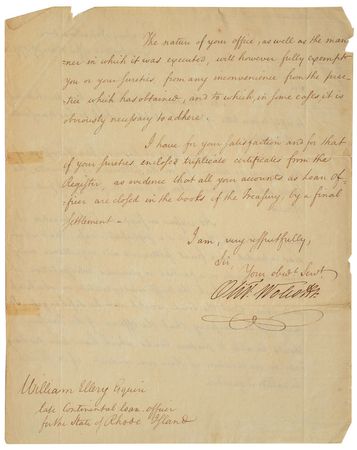 The nature of your office, as well as the man-
ner in which it was executed, will however fully exempt
you or your sureties, from any inconvenience from the prac-
tice which has obtained, and to which, in some cases it is
obviously necessary to adhere.
I have for your satisfaction and for that
of your sureties enclosed triplicate certificates from the
Register, as evidence that all your accounts as Loan of-
ficer are closed in the books of the Treasury, by a final
settlement.
I am, very respectfully,
Sir
Your obedt. Servt
Olivr. Wolcott
William Ellery Esquire
late Continental loan-officer
for the State of Rhode Island